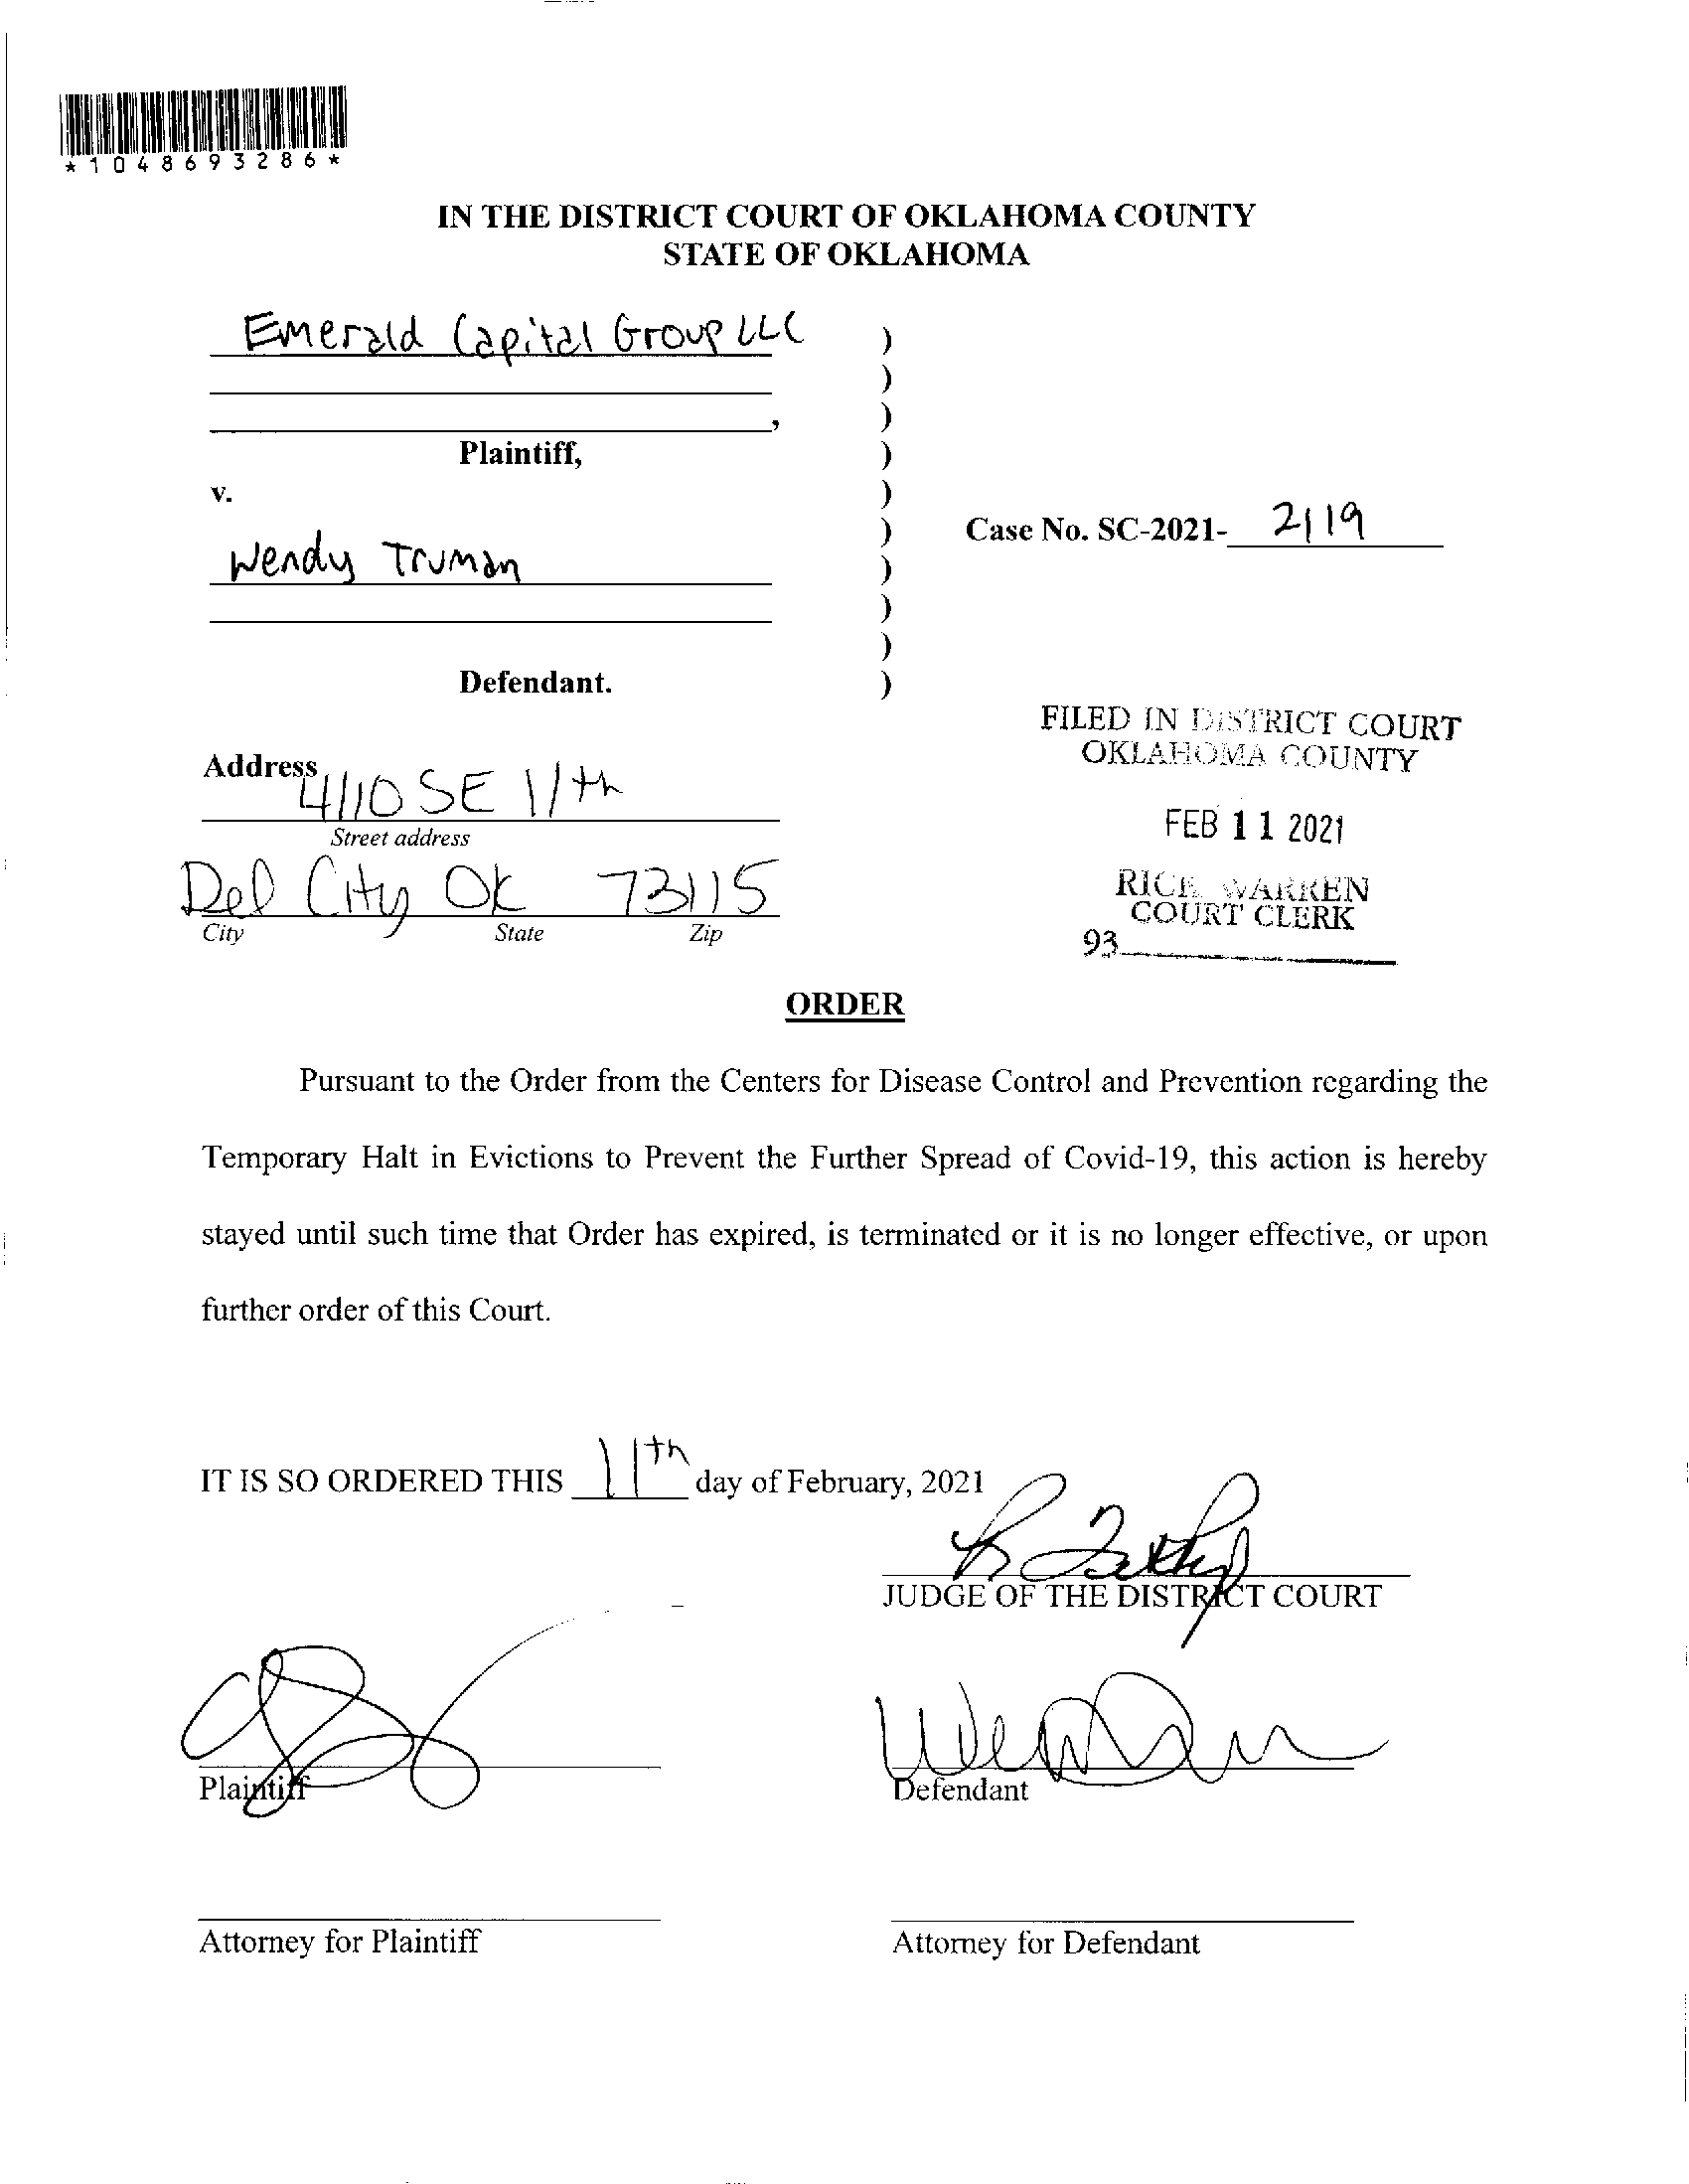 *1048693286*
IN THE DISTRICT COURT OF OKLAHOMA COUNTY
STATE OF OKLAHOMA
Emerald Capital Group LLC )
)
, )
Plaintiff, )
v. )
) Case No. SC-2021- 2119
Wendy Truman )
)
)
Defendant. )
FILED IN DISTRICT COURT
OKLAHOMA COUNTY
FEB 11 2021
RICK WARREN
COURT CLERK
93
Address
4110 SE 11th
Street address
Del City OK 73115
City State Zip
ORDER
Pursuant to the Order from the Centers for Disease Control and Prevention regarding the
Temporary Halt in Evictions to Prevent the Further Spread of Covid-19, this action is hereby
stayed until such time that Order has expired, is terminated or it is no longer effective, or upon
further order of this Court.
IT IS SO ORDERED THIS 11th day of February, 2021
JUDGE OF THE DISTRICT COURT
Plaintiff Defendant
Attorney for Plaintiff Attorney for Defendant